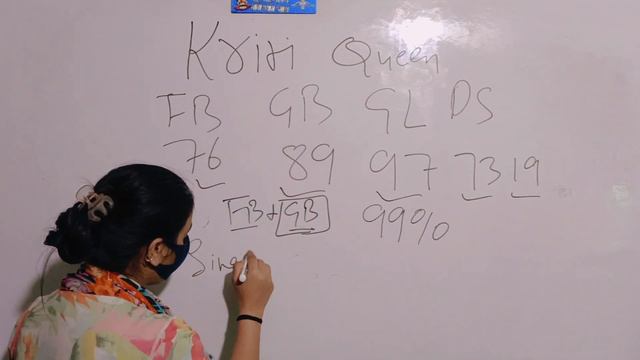 Kriti Queen
FB GB GL DS
76 89 97 73 19
FB+GB 99%